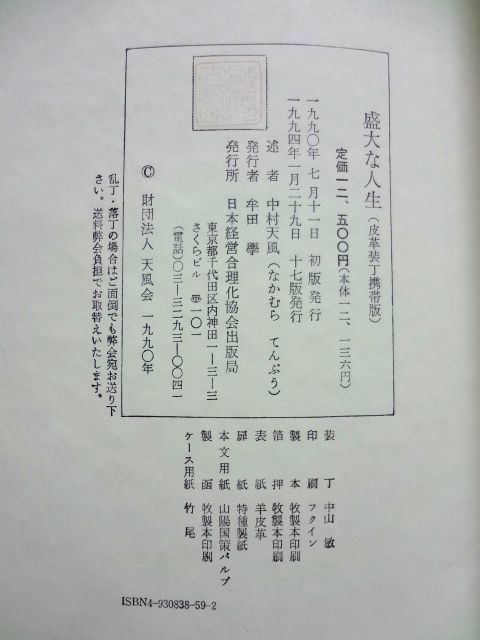 盛大な人生(皮革装丁携帯版)
定価一二、五〇〇円(本体一二、一三六円)
一九九〇年 七月十一日 初版発行
一九九四年一月二十九日 十七版発行
述者 中村天風(なかむら てんぷう)
発行者 牟田 學
発行所 日本経営合理化協会出版局
東京都千代田区内神田一―三―三
さくらビル 〒一〇一
(電話)〇三―三二九三―〇〇四一
© 財団法人 天風会 一九九〇年
乱丁・落丁の場合はご面倒でも弊会宛お送り下
さい。送料弊会負担でお取替えいたします。
装丁 中山 敏
印刷 フクイン
製本 牧製本印刷
箔押 牧製本印刷
表紙 羊皮革
扉紙 特種製紙
本文用紙 山陽国策パルプ
製函 牧製本印刷
ケース用紙 竹尾
ISBN4-930838-59-2